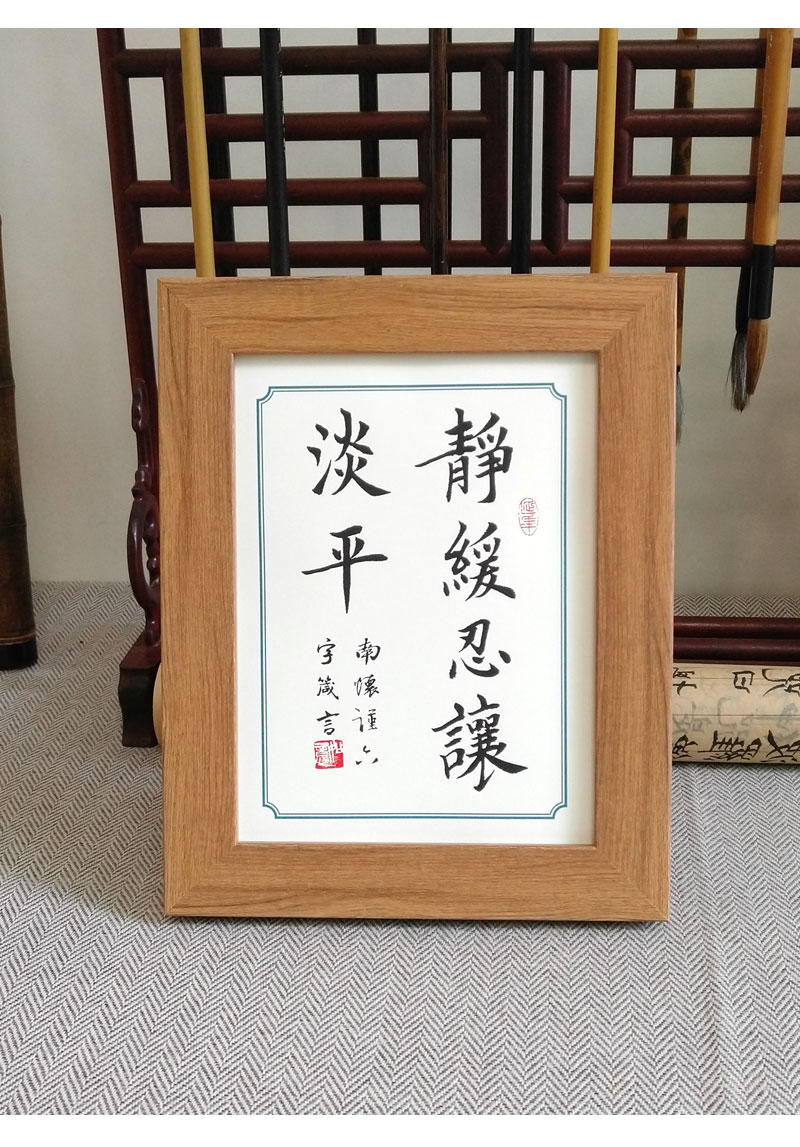 靜緩忍讓
淡平
南懷謹六
字箴言